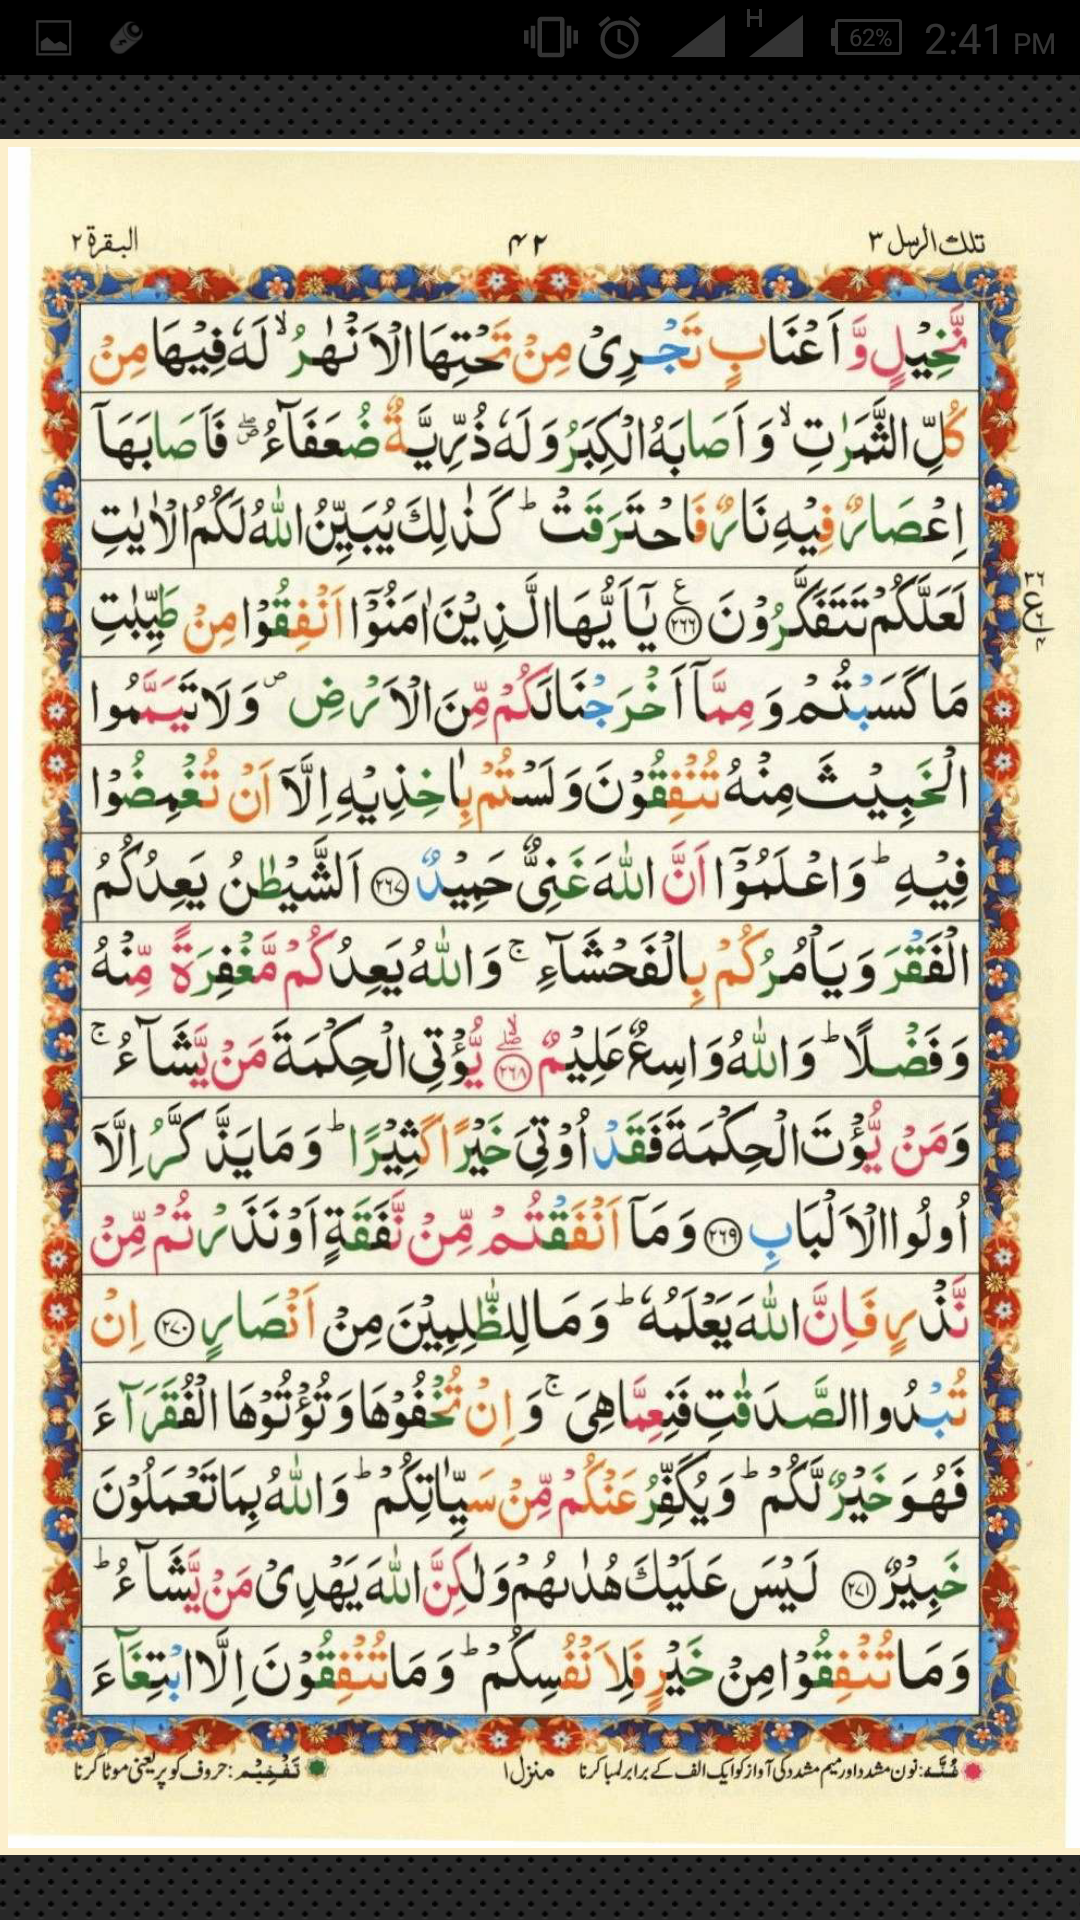 H 62% 2:41 PM
تلك الرسل ٣ ٤٢ البقرة ٢
نَّخِيْلٍ وَّ اَعْنَابٍ تَجْرِيْ مِنْ تَحْتِهَا الْاَنْهٰرُ ۙ لَهٗ فِيْهَا مِنْ
كُلِّ الثَّمَرٰتِ ۙ وَ اَصَابَهُ الْكِبَرُ وَ لَهٗ ذُرِّيَّةٌ ضُعَفَآءُ ۖ فَاَصَابَهَاۤ
اِعْصَارٌ فِيْهِ نَارٌ فَاحْتَرَقَتْ ؕ كَذٰلِكَ يُبَيِّنُ اللّٰهُ لَكُمُ الْاٰيٰتِ
لَعَلَّكُمْ تَتَفَكَّرُوْنَ ۧ ﴿٢٦٦﴾ يٰۤاَيُّهَا الَّذِيْنَ اٰمَنُوْۤا اَنْفِقُوْا مِنْ طَيِّبٰتِ
٣٦ ع ٦ ٤
مَا كَسَبْتُمْ وَ مِمَّاۤ اَخْرَجْنَا لَكُمْ مِّنَ الْاَرْضِ ۪ وَ لَا تَيَمَّمُوا
الْخَبِيْثَ مِنْهُ تُنْفِقُوْنَ وَ لَسْتُمْ بِاٰخِذِيْهِ اِلَّاۤ اَنْ تُغْمِضُوْا
فِيْهِ ؕ وَ اعْلَمُوْۤا اَنَّ اللّٰهَ غَنِيٌّ حَمِيْدٌ ﴿٢٦٧﴾ اَلشَّيْطٰنُ يَعِدُكُمُ
الْفَقْرَ وَ يَاْمُرُكُمْ بِالْفَحْشَآءِ ۚ وَ اللّٰهُ يَعِدُكُمْ مَّغْفِرَةً مِّنْهُ
وَ فَضْلًا ؕ وَ اللّٰهُ وَاسِعٌ عَلِيْمٌ ۖۙ ﴿٢٦٨﴾ يُّؤْتِي الْحِكْمَةَ مَنْ يَّشَآءُ ۚ
وَ مَنْ يُّؤْتَ الْحِكْمَةَ فَقَدْ اُوْتِيَ خَيْرًا كَثِيْرًا ؕ وَ مَا يَذَّكَّرُ اِلَّاۤ
اُولُوا الْاَلْبَابِ ﴿٢٦٩﴾ وَ مَاۤ اَنْفَقْتُمْ مِّنْ نَّفَقَةٍ اَوْ نَذَرْتُمْ مِّنْ
نَّذْرٍ فَاِنَّ اللّٰهَ يَعْلَمُهٗ ؕ وَ مَا لِلظّٰلِمِيْنَ مِنْ اَنْصَارٍ ﴿٢٧٠﴾ اِنْ
تُبْدُوا الصَّدَقٰتِ فَنِعِمَّا هِيَ ۚ وَ اِنْ تُخْفُوْهَا وَ تُؤْتُوْهَا الْفُقَرَآءَ
فَهُوَ خَيْرٌ لَّكُمْ ؕ وَ يُكَفِّرُ عَنْكُمْ مِّنْ سَيِّاٰتِكُمْ ؕ وَ اللّٰهُ بِمَا تَعْمَلُوْنَ
خَبِيْرٌ ﴿٢٧١﴾ لَيْسَ عَلَيْكَ هُدٰىهُمْ وَ لٰكِنَّ اللّٰهَ يَهْدِيْ مَنْ يَّشَآءُ ؕ
وَ مَا تُنْفِقُوْا مِنْ خَيْرٍ فَلِاَنْفُسِكُمْ ؕ وَ مَا تُنْفِقُوْنَ اِلَّا ابْتِغَآءَ
غُنَّه: نون مشدد اور میم مشدد کی آواز کو ایک الف کے برابر لمبا کرنا منزل ١ تَفْخِیْم: حروف کو پر یعنی موٹا کرنا